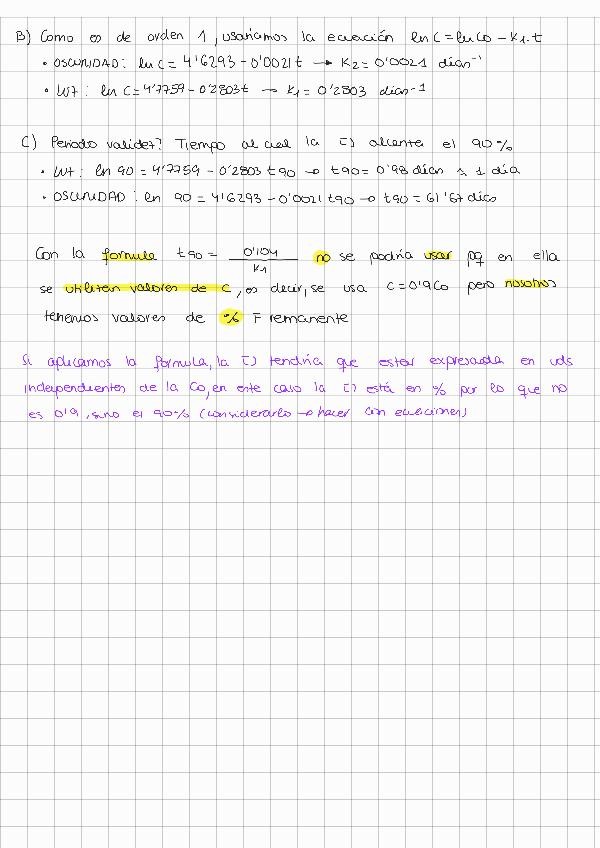 B) Como es de orden 1, usaríamos la ecuación ln C = ln C0 - K1·t
• OSCURIDAD: ln C = 4'6293 - 0'0021 t → K2 = 0'0021 días⁻¹
• LUZ: ln C = 4'7759 - 0'2803 t → K1 = 0'2803 días⁻¹
C) Periodo validez? Tiempo al cual la [] alcanza el 90%
• LUZ: ln 90 = 4'7759 - 0'2803 t90 → t90 = 0'98 días ≈ 1 día
• OSCURIDAD: ln 90 = 4'6293 - 0'0021 t90 → t90 = 61'67 días
Con la fórmula t90 = 0'104 / K1 no se podría usar pq en ella
se utilizan valores de C, es decir, se usa C = 0'9 C0 pero nosotros
tenemos valores de % F remanente
Si aplicamos la fórmula, la [] tendría que estar expresada en uds
independientes de la C0, en este caso la [] está en % por lo que no
es 0'9, sino el 90% (considerarlo → hacer con ecuaciones)